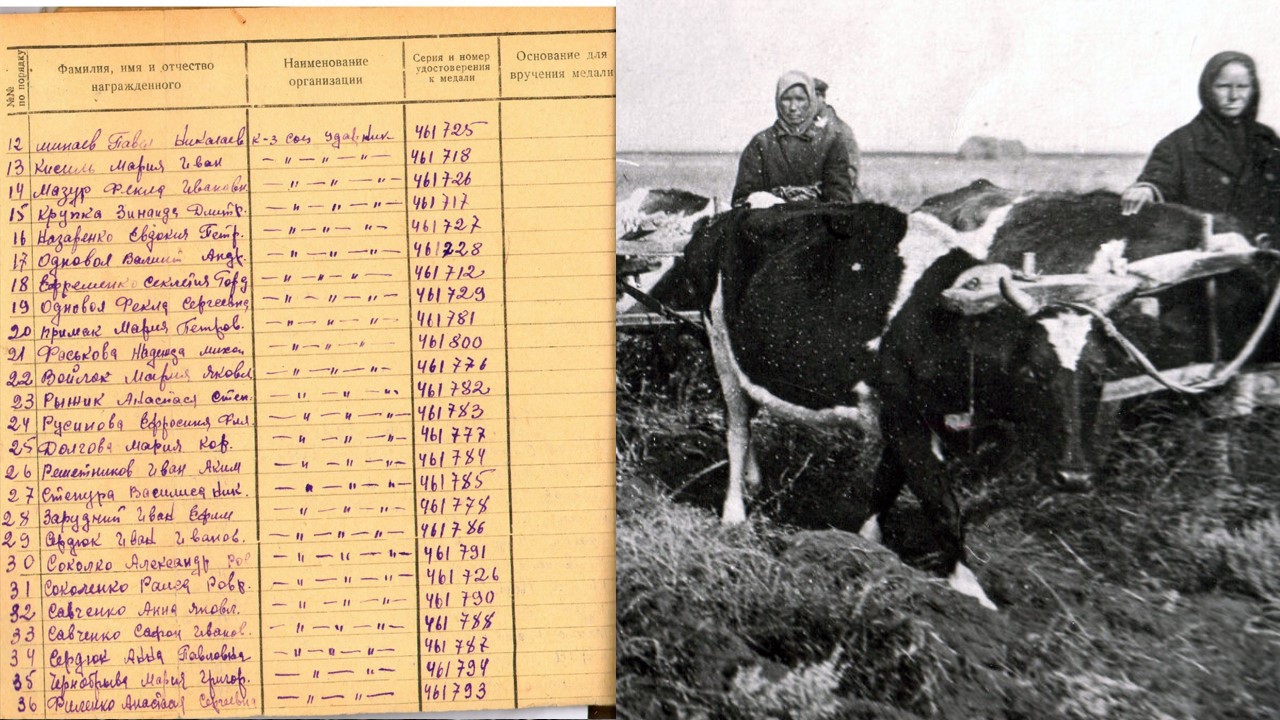 №№ по порядку
Фамилия, имя и отчество награжденного
Наименование организации
Серия и номер удостоверения к медали
Основание для вручения медали
12 Минаев Павел Николаев к-з соц ударник 461725
13 Кисиль Мария Иван — " — " — " — 461718
14 Мазур Фекла Ивановн — " — " — " — 461726
15 Крупка Зинаида Дмитр. — " — " — " — 461717
16 Назаренко Евдокия Петр. — " — " — " — 461727
17 Одновол Валент Андр. — " — " — " — 461728
18 Ефременко Секлетия Горд — " — " — " — 461712
19 Одновол Фекла Сергеевна — " — " — " — 461729
20 Примак Мария Петров. — " — " — " — 461781
21 Фаськова Надежда Михаи — " — " — " — 461800
22 Войлок Мария Яковл — " — " — " — 461776
23 Рыжик Анастаси Степ. — " — " — " — 461782
24 Русинова Ефросиния Фил. — " — " — " — 461783
25 Долгова Мария Кор. — " — " — " — 461777
26 Решетников Иван Аким — " — " — " — 461784
27 Стецура Василиса Ник. — " — " — " — 461785
28 Зарудний Иван Ефим — " — " — " — 461778
29 Сердюк Иван Иванов. — " — " — " — 461786
30 Соколко Александр — " — " — " — 461791
31 Соколенко Раиса — " — " — " — 461726
32 Савченко Анна Яковл. — " — " — " — 461790
33 Савченко Сафон Иванов. — " — " — " — 461788
34 Сердюк Анна Павловна — " — " — " — 461787
35 Чернобрыва Мария Григор. — " — " — " — 461794
36 Анастасия Сергеевна — " — " — " — 461793